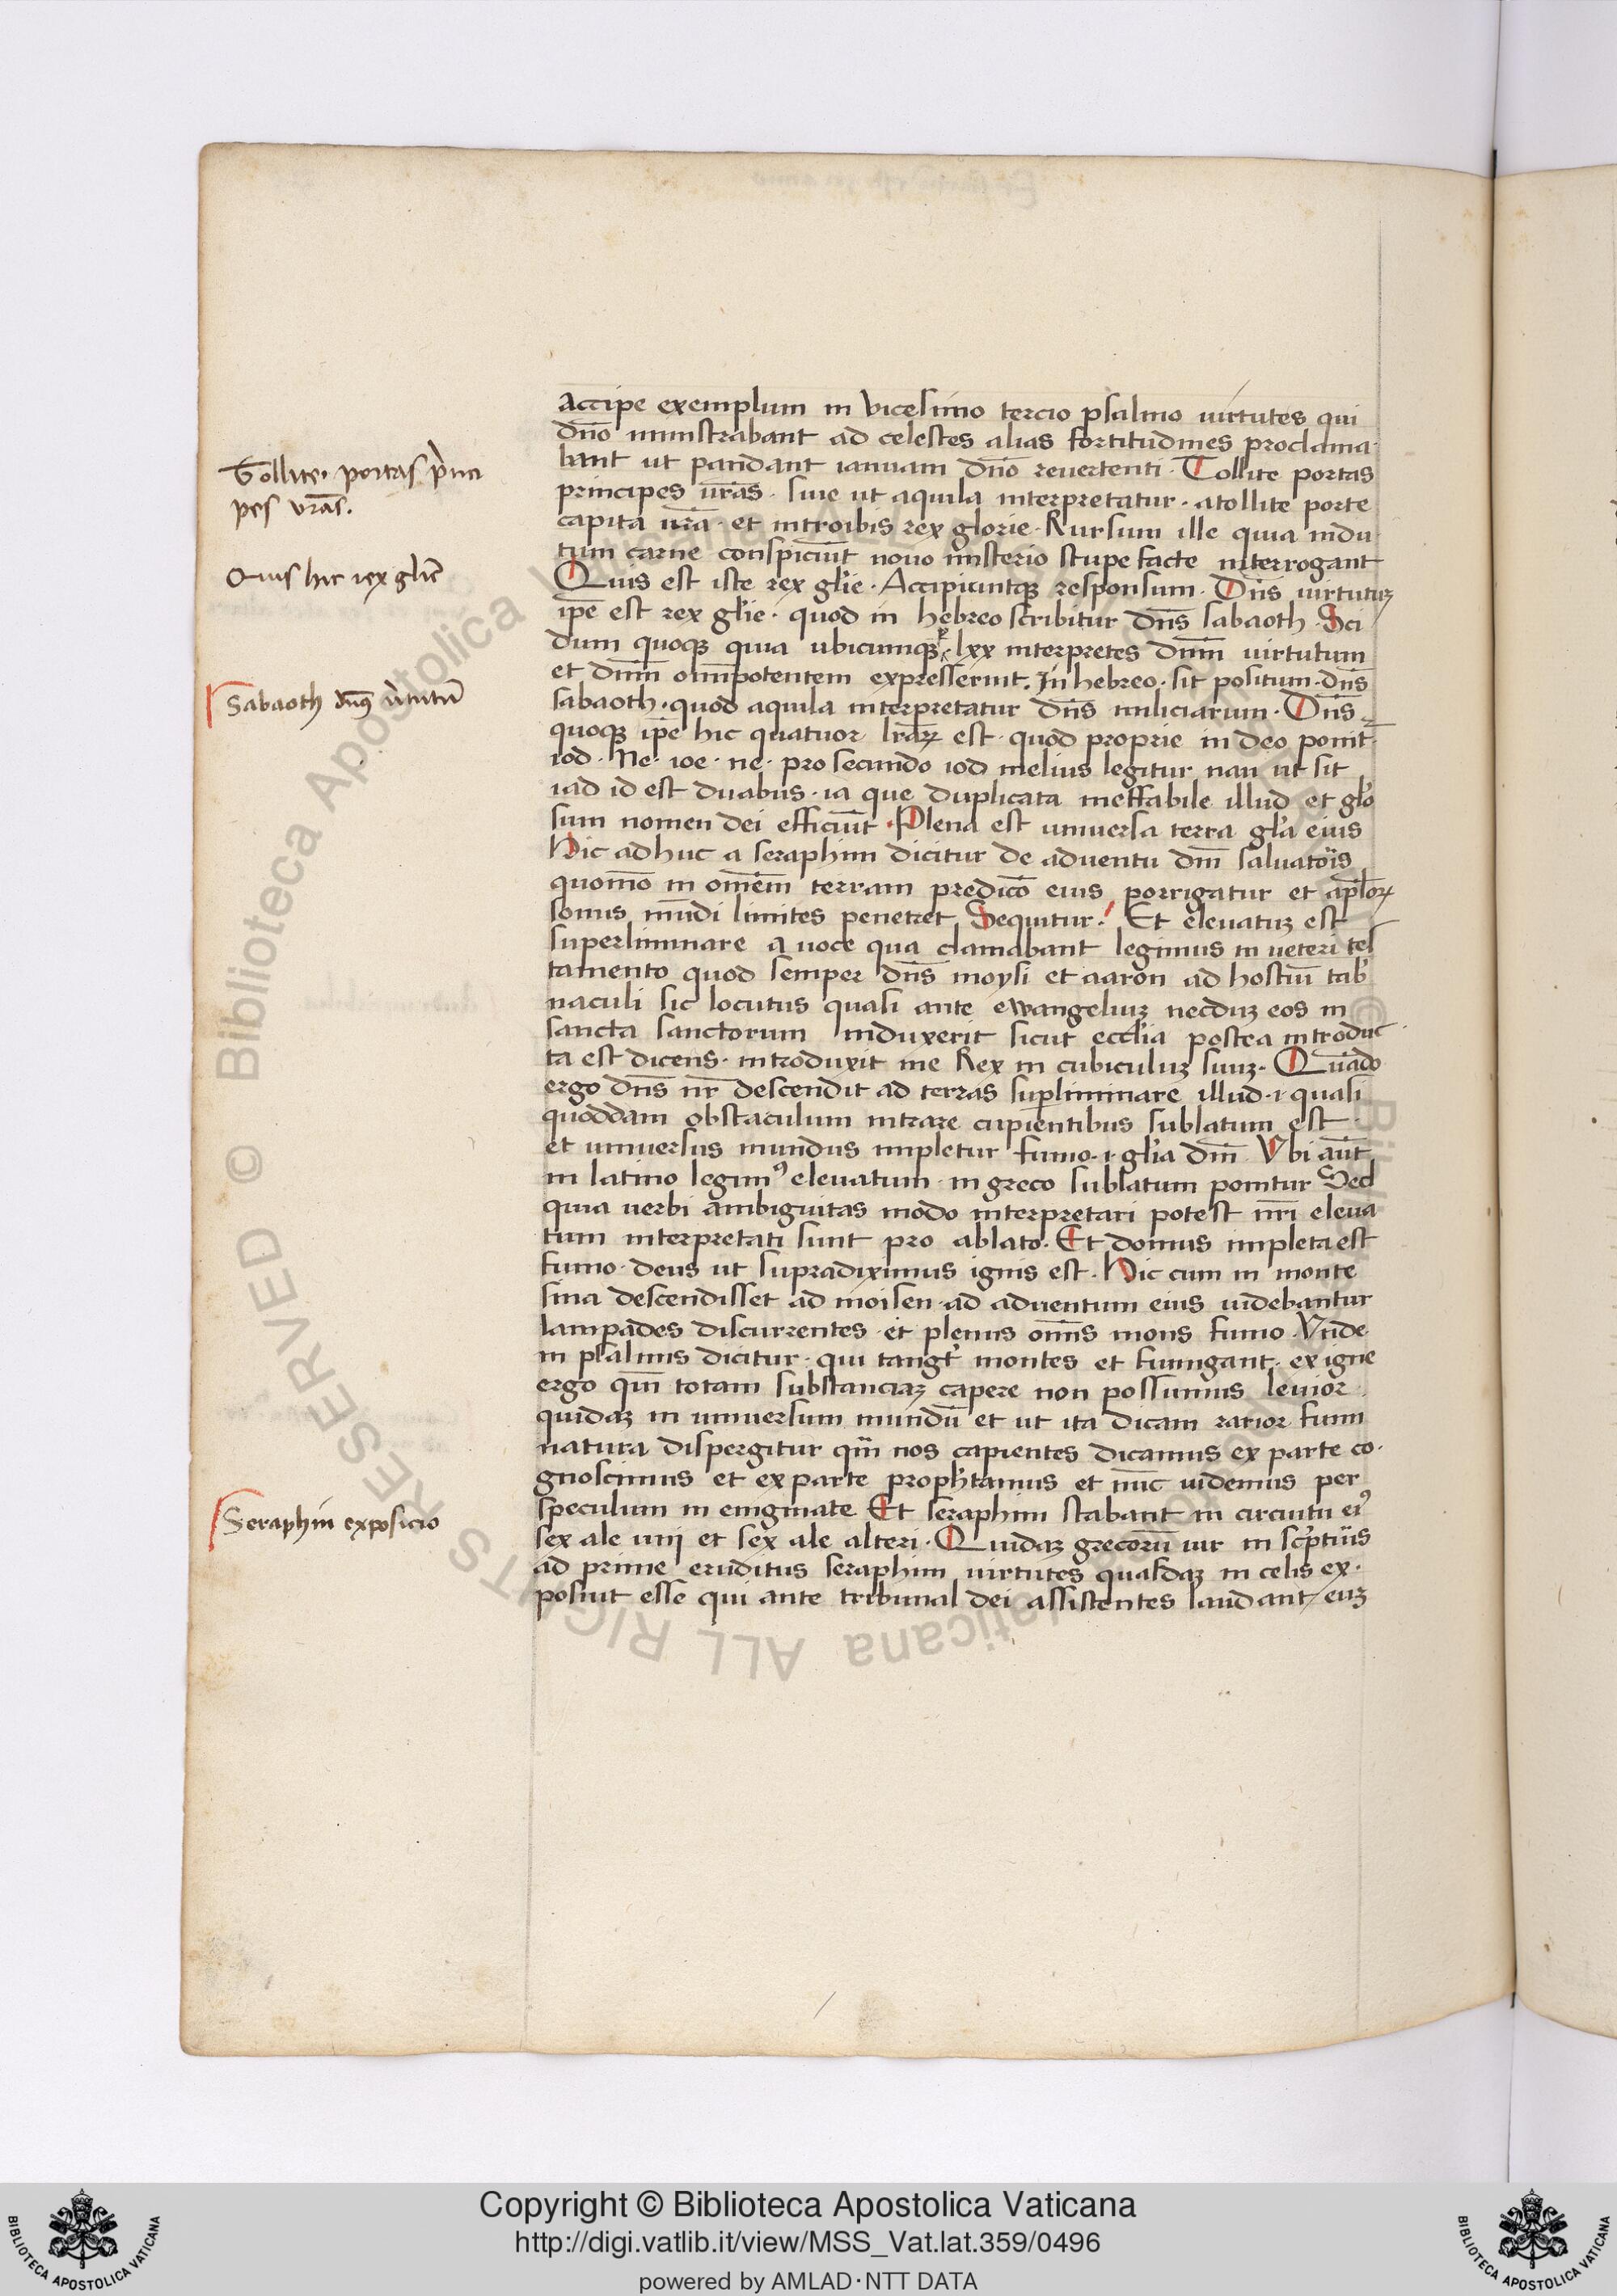 Accipe exemplum in vicesimo tercio psalmo uirtutes qui
dn̄o ministrabant ad celestes alias fortitudines proclama
bant ut pandant ianuam dn̄o reuertenti · Tollite portas
principes ur̄as · siue ut aquila interpretatur · atollite porte
capita ur̄a · et introibis rex glorie · Rursum ille quia indu
tum carne conspiciūt nouo misterio stupefacte interrogant
Quis est iste rex gl̄ie · Accipiuntqꝫ responsum · Dn̄s uirtutuꝫ
ip̄e est rex gl̄ie · quod in hebreo scribitur dn̄s sabaoth · Sci
dum quoqꝫ quia ubicumqꝫ · lxx interpretes dn̄m uirtutum
et dn̄m om̄ipotentem expresserint. In hebreo · sit positum · dn̄s
sabaoth · quod aquila interpretatur dn̄s miliciarum · Dn̄s
quoqꝫ ip̄e hic quatuor lr̄aꝝ est · quod proprie in deo ponit̄ ·
iod · he · ioe · he · pro secundo iod melius legitur uau ut sit
iad id est duabus · ia que duplicata ineffabile illud et gl̄o
sum nomen dei efficiūt · Plena est uniuersa terra gl̄a eius
Hic adhuc a seraphim dicitur de aduentu dn̄i saluatoris
quom̄o in om̄em terram predicō eius porrigatur et apl̄oꝝ
sonus mūdi limites penetret Sequitur · Et eleuatuꝫ est
superliminare a uoce qua clamabant legimus in ueteri tes
tamento quod semper dn̄s moysi et aaron ad hostiū tab̄
naculi sic locutus quasi ante ewangeliuꝫ necduꝫ eos in
sancta sanctorum induxerit sicut eccl̄ia postea introduc
ta est dicens · introduxit me Rex in cubiculuꝫ suuꝫ · Quādo
ergo dn̄s nr̄ descendit ad terras suꝑliminare illud · i · quasi
quoddam obstaculum intrare cupientibus sublatum est ·
et uniuersus mundus impletur fumo · i · gl̄ia dn̄i Vbi aūt
in latino legimꝰ eleuatum · in greco sublatum ponitur Sed
quia uerbi ambiguitas modo interpretari potest nr̄i eleua
tum interpretati sunt pro ablato · Et domus impleta est
fumo · deus ut supradiximus ignis est · Hic cum in monte
sina descendisset ad moisen · ad aduentum eius uidebantur
lampades discurrentes · et plenus om̄is mons fumo · Vnde
in psalmis dicitur · qui tangit montes et fumigant · ex igne
ergo qm̄ totam substanciaꝫ capere non possumus leuior
quidaꝫ in uniuersum mundū et ut ita dicam rarior fumi
natura dispergitur qm̄ nos capientes dicamus ex parte co ·
gnoscimus et ex parte prophtamus et nūc uidemus per
speculum in enigmate Et seraphim stabant in circuitu eiꝰ
sex ale uni et sex ale alteri · Quidaꝫ grecorū uir in scripturis
ad prime eruditus seraphim uirtutes quasdaꝫ in celis ex ·
posuit esse qui ante tribunal dei assistentes laudant euꝫ
Tollite · portas prīci
pes vr̄as.
Quis hic rex gl̄ie
Sabaoth dn̄s v̄tutū
Seraphin exposicio
© Biblioteca Apostolica Vaticana ALL RIGHTS RESERVED
Copyright © Biblioteca Apostolica Vaticana
http://digi.vatlib.it/view/MSS_Vat.lat.359/0496
powered by AMLAD·NTT DATA
BIBLIOTECA APOSTOLICA VATICANA
BIBLIOTECA APOSTOLICA VATICANA